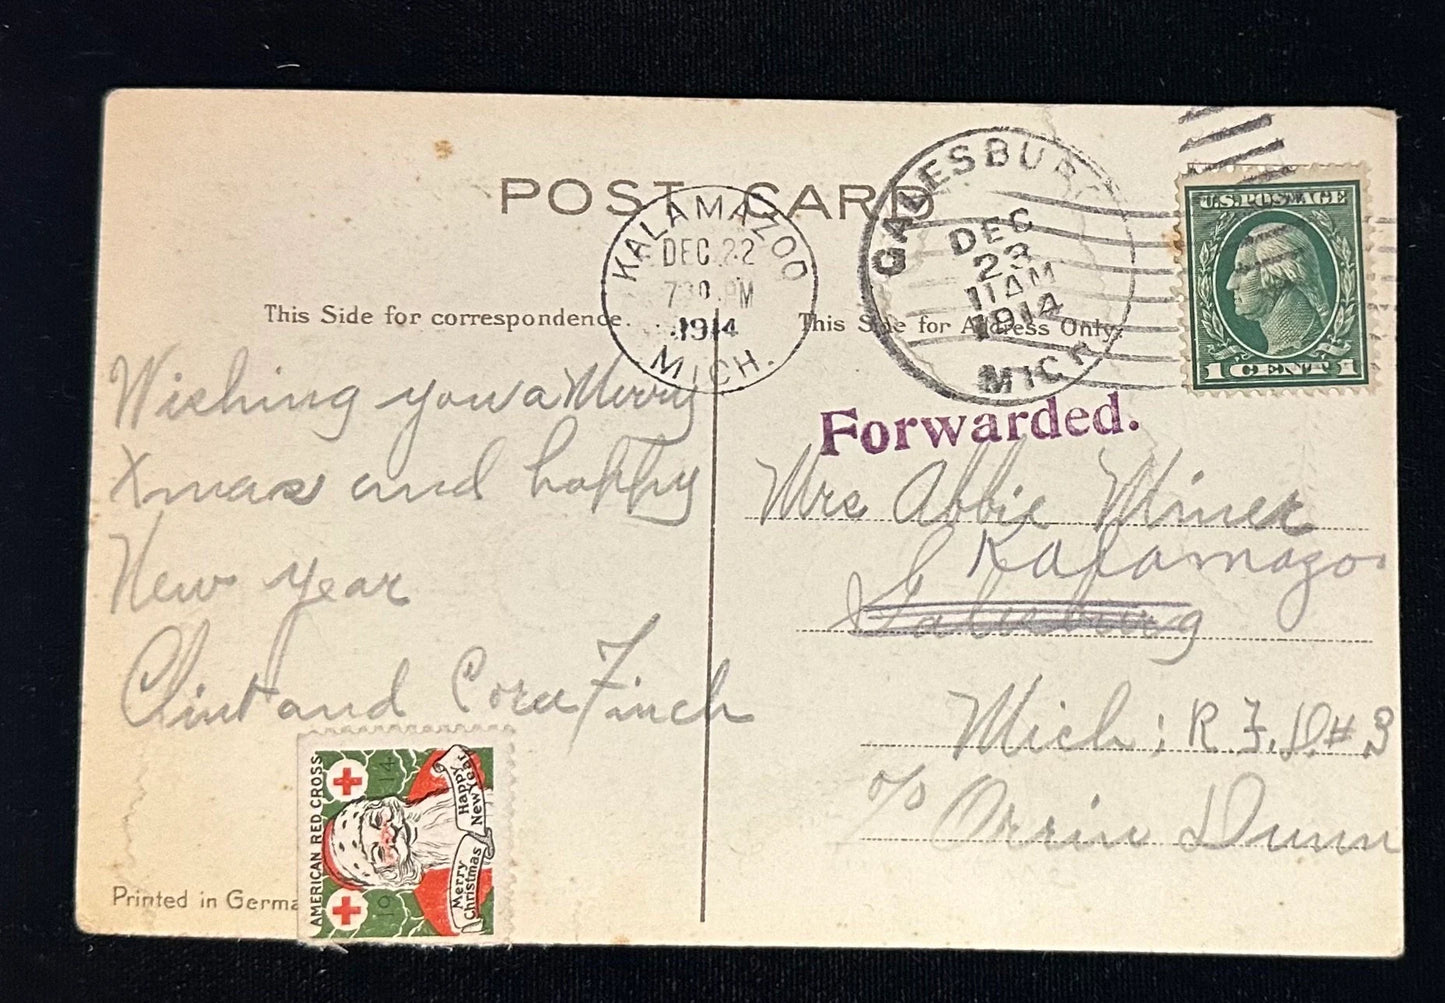 POST CARD
KALAMAZOO
DEC 22
7 30 PM
1914
MICH.
GALESBURG
DEC
23
11 AM
1914
MICH
U.S. POSTAGE
1 CENT 1
This Side for correspondence.
This Side for Address Only.
Forwarded.
Wishing you a Merry
Xmas and happy
New year
Clint and Cora Finch
Mrs Abbie Miner
Kalamazoo
Galesburg
Mich: R.F.D.#3
c/o Orrin Dunn
AMERICAN RED CROSS
19 14
Merry
Christmas
Happy
New Year
Printed in Germa